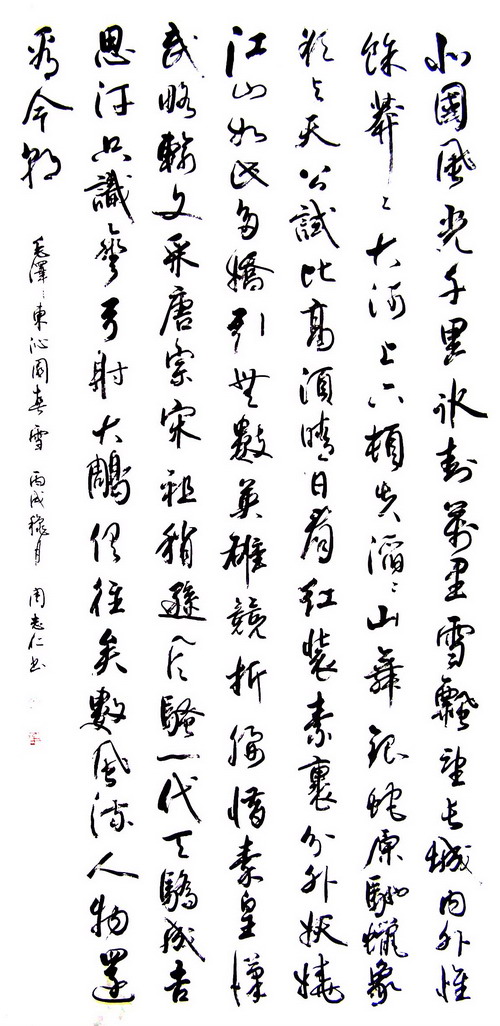 北國風光千里冰封萬里雪飄望長城内外惟
餘莽々大河上下頓失滔々山舞銀蛇原馳蠟象
欲與天公試比高須晴日看紅裝素裹分外妖嬈
江山如此多嬌引無數英雄競折腰惜秦皇漢
武略輸文采唐宗宋祖稍遜風騷一代天驕成吉
思汗只識彎弓射大鵰俱往矣數風流人物還
看今朝
毛澤東沁園春雪 丙戌月 周志仁書